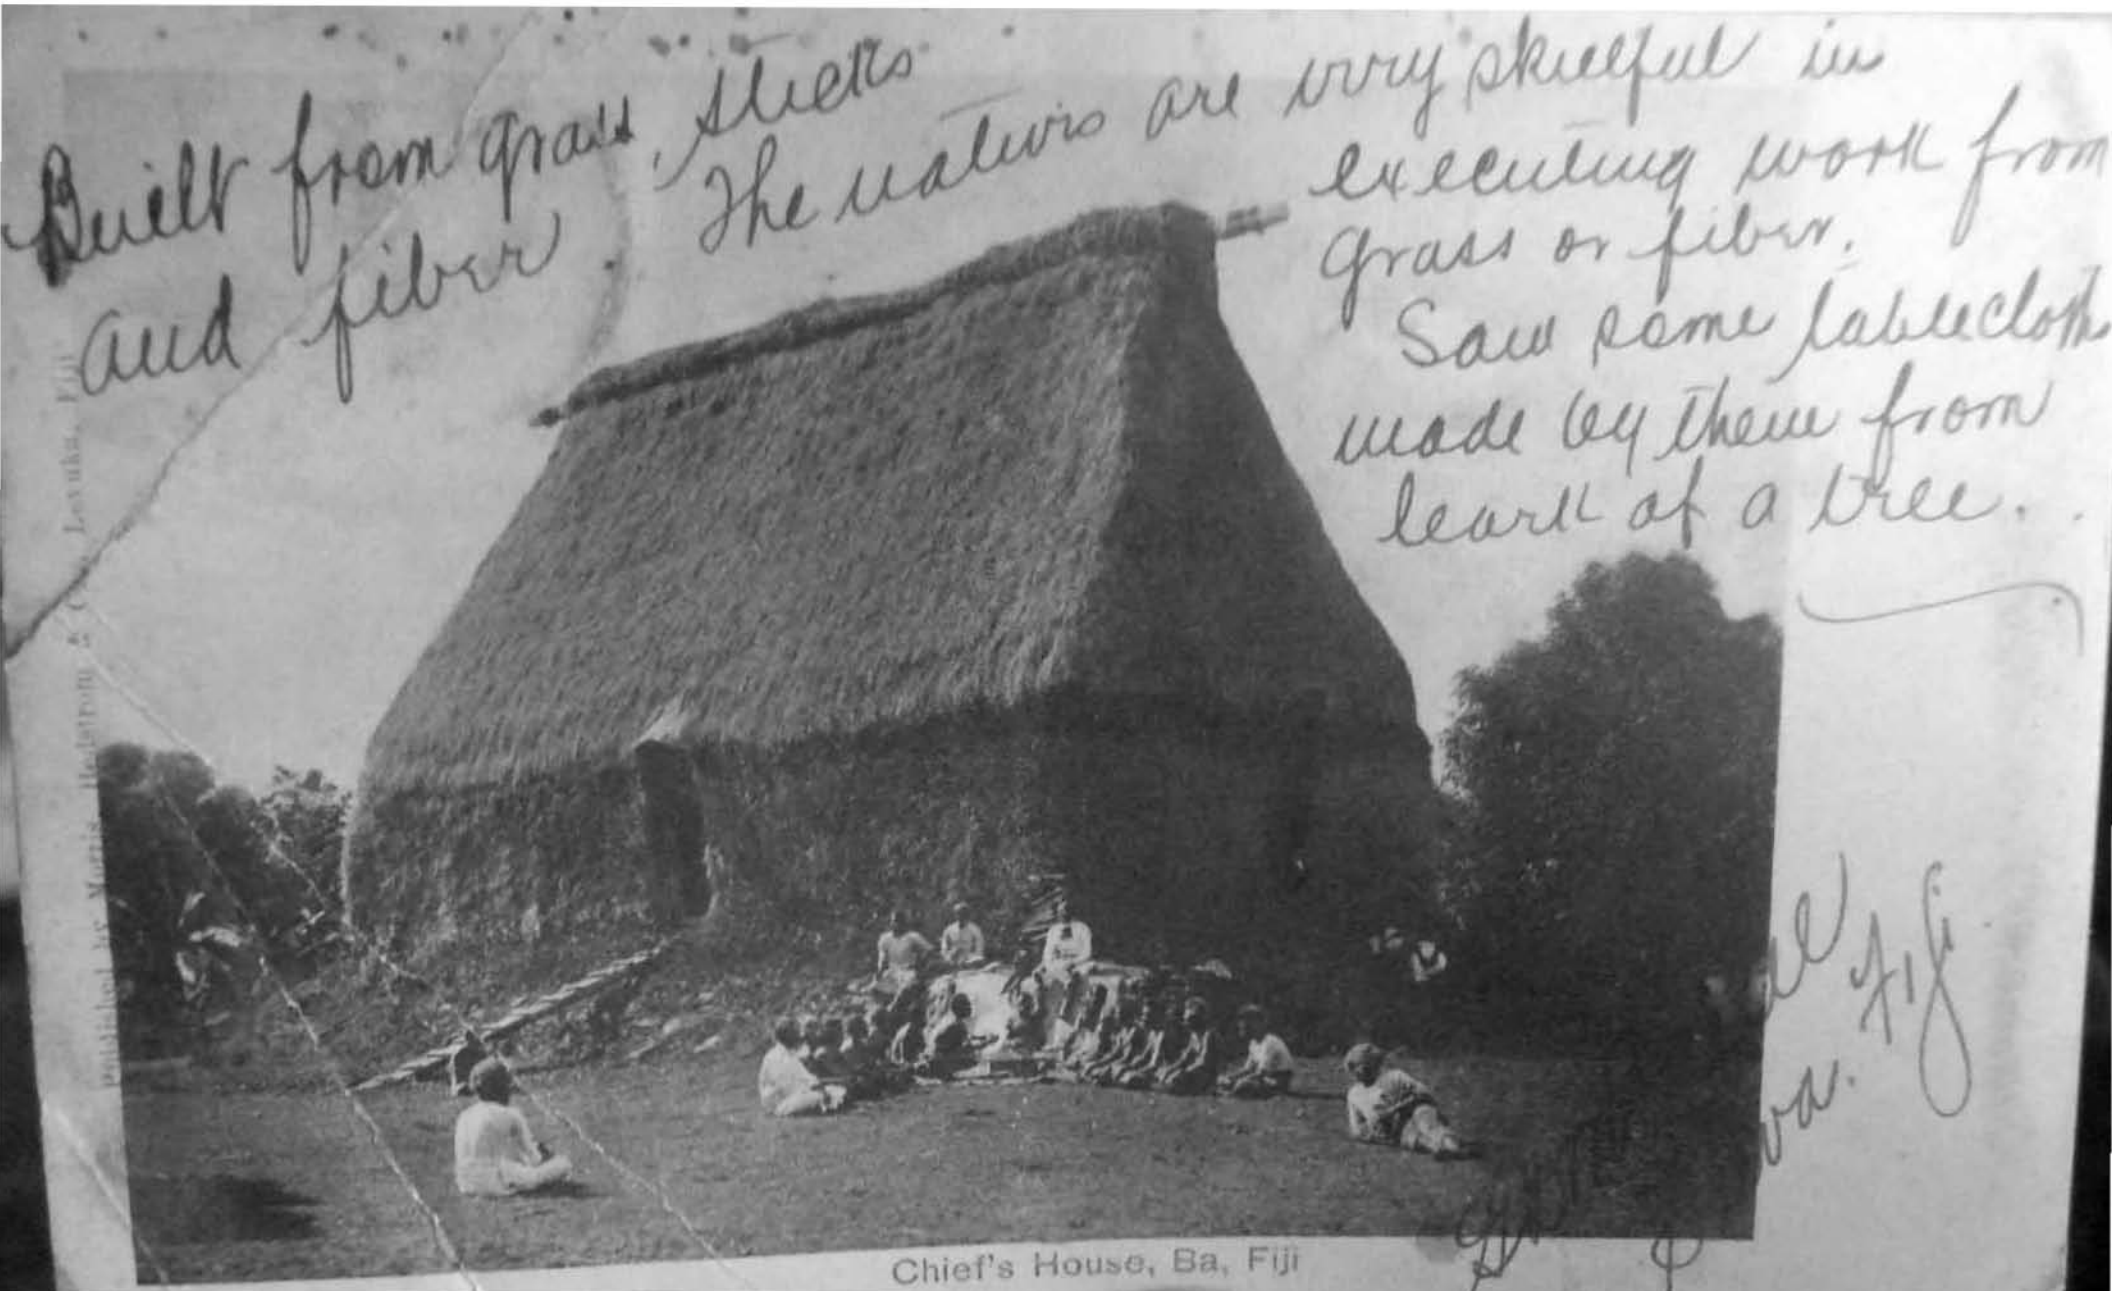 Built from grass, sticks
and fiber
The natives are very skilful in
executing work from
grass or fiber.
Saw some tablecloths
made by them from
bark of a tree.
Fiji
Published by Morris Hedstrom & Co. Levuka, Fiji
Chief's House, Ba, Fiji